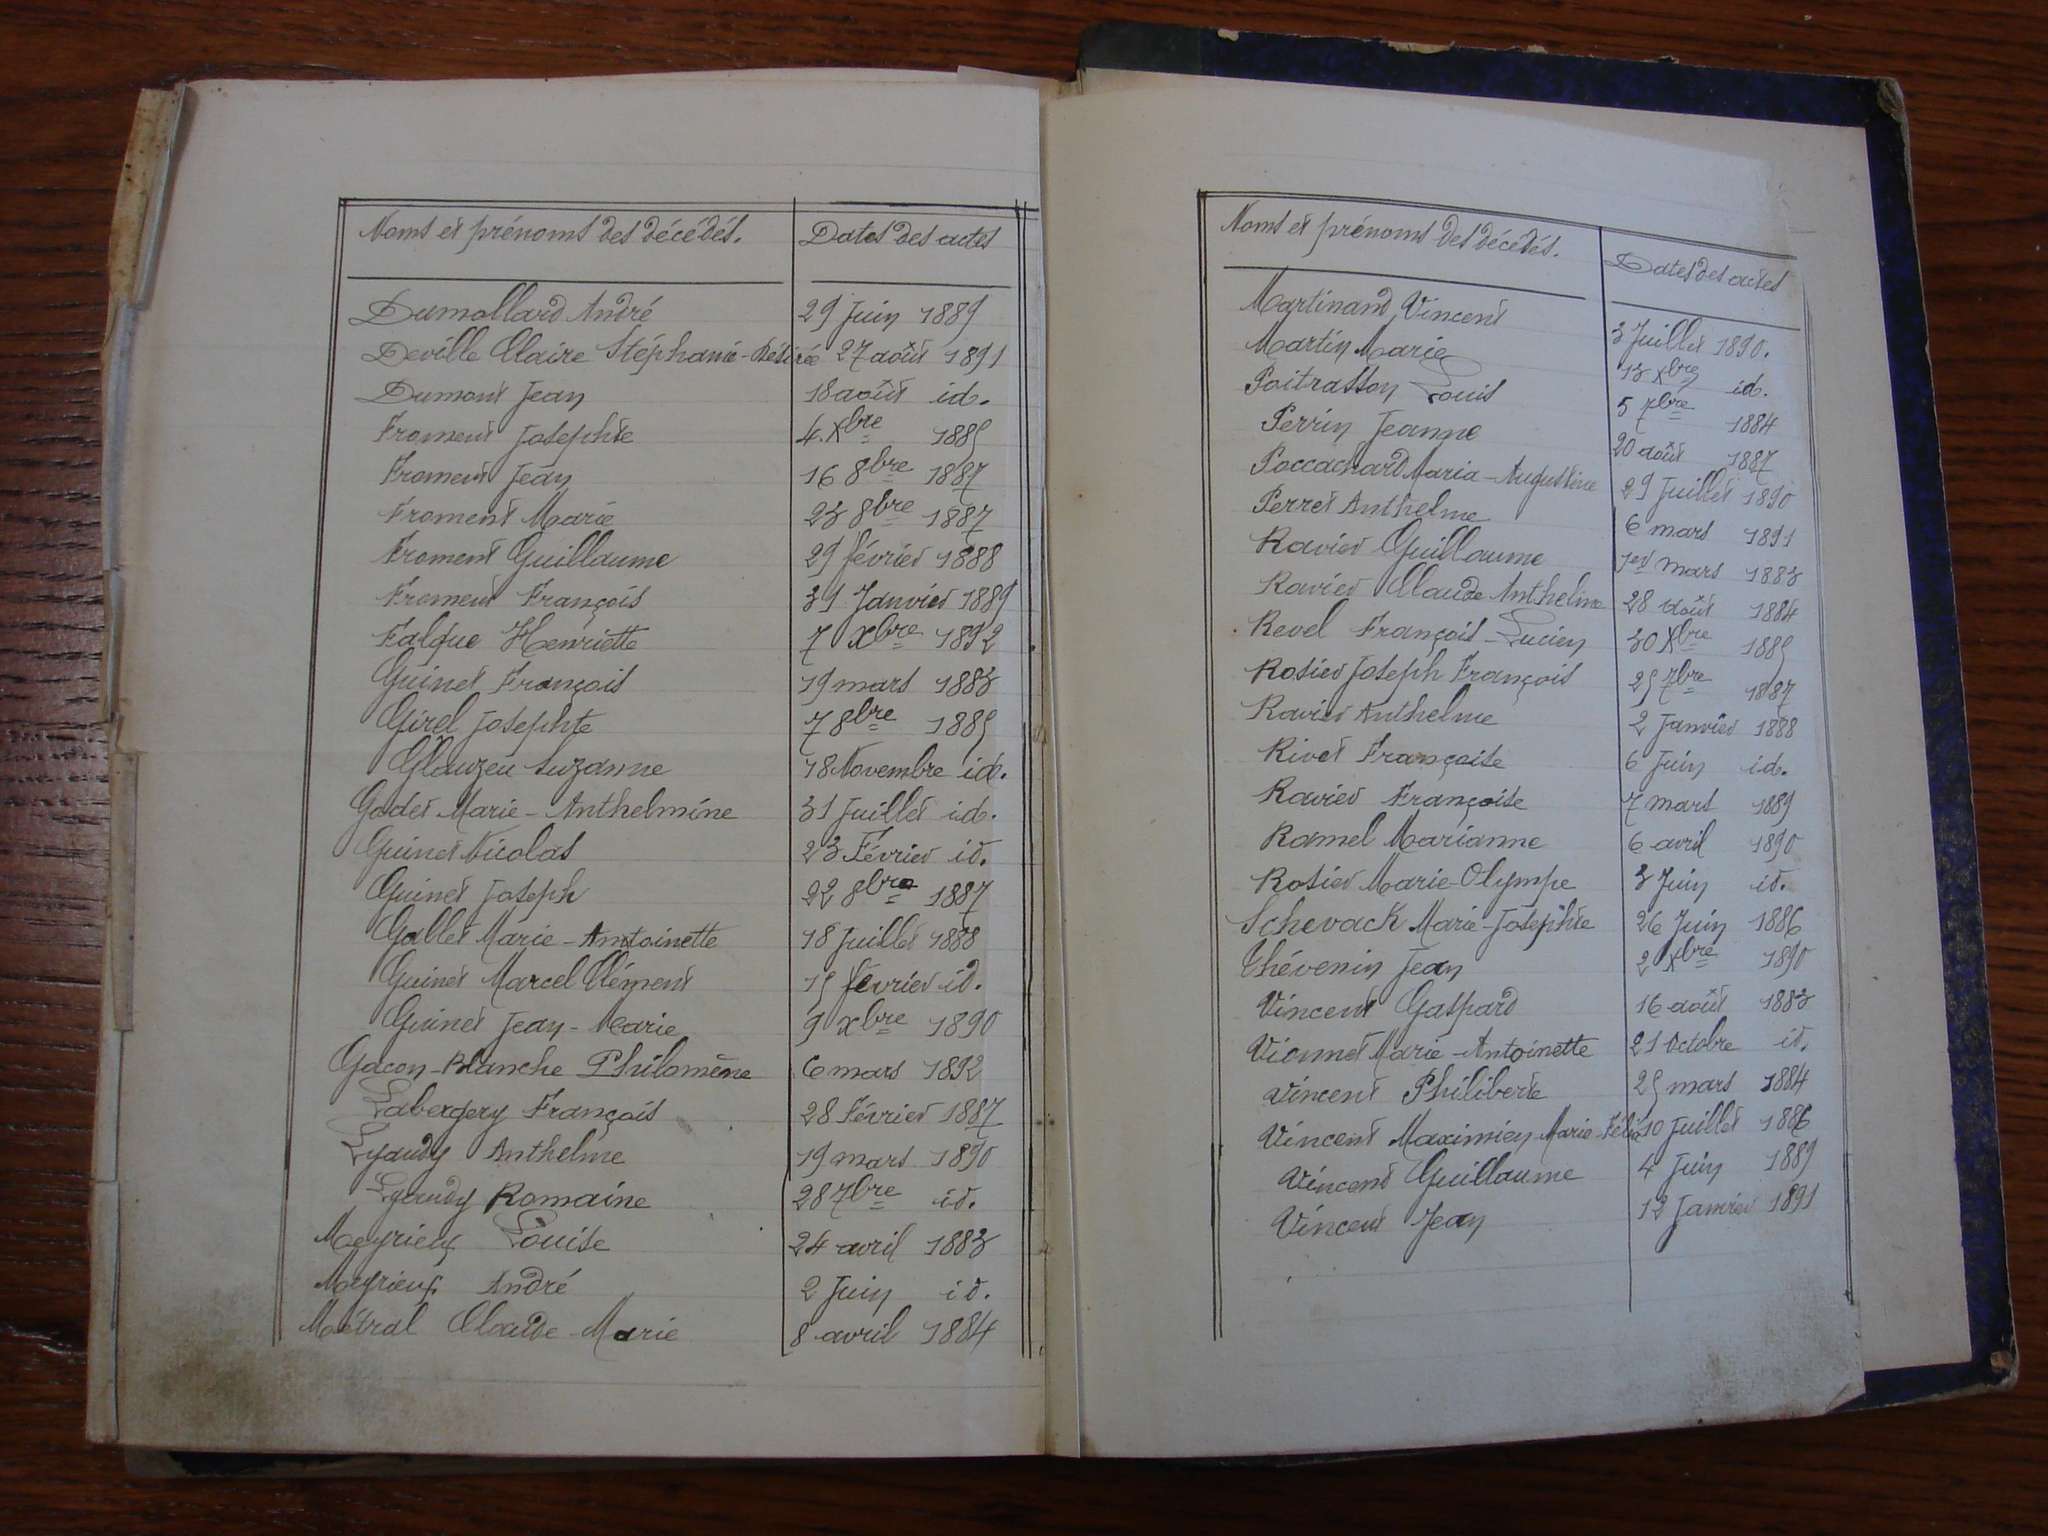 Noms et prénoms des décédés. Dates des actes
Dumollard André 29 Juin 1889
Deville Claire Stéphanie-Désirée 27 août 1891
Dumont Jean 18 août id.
Froment Josephte 4 Xbre 1885
Froment Jean 16 8bre 1887
Froment Marie 23 8bre 1887
Froment Guillaume 29 février 1888
Froment François 31 Janvier 1889
Falque Henriette 7 Xbre 1892
Guinet François 19 mars 1883
Girel Josephte 7 8bre 1885
Glauzeu Suzanne 18 Novembre id.
Godet Marie-Anthelmine 31 Juillet id.
Guinet Nicolas 23 Février id.
Guinet Joseph 22 8bre 1887
Gallet Marie-Antoinette 18 Juillet 1888
Guinet Marcel Clément 15 février id.
Guinet Jean-Marie 9 Xbre 1890
Gacon-Blanche Philomène 6 mars 1892
Labergery François 28 Février 1887
Lyaudy Anthelme 19 mars 1890
Lyaudy Romaine 28 7bre id.
Meyrieux Louise 24 avril 1883
Meyrieux André 2 Juin id.
Métral Claude-Marie 8 avril 1884
Noms et prénoms des décédés. Dates des actes
Martinand Vincent 3 Juillet 1890.
Martin Marie 13 Xbre id.
Poitrasson Louis 5 7bre 1884
Perrin Jeanne 20 août 1887
Poccachard Maria-Augustine 29 Juillet 1890
Perret Anthelme 6 mars 1891
Ravier Guillaume 1er mars 1883
Ravier Claude Anthelme 28 août 1884
Revel François-Lucien 30 Xbre 1885
Rosier Joseph François 25 7bre 1887
Ravier Anthelme 2 Janvier 1888
Rivet Françoise 6 Juin id.
Ravier Françoise 7 mars 1889
Ramel Marianne 6 avril 1890
Rosier Marie-Olympe 3 Juin id.
Schevack Marie-Josephte 26 Juin 1886
Thévenin Jean 2 Xbre 1890
Vincent Gaspard 16 août 1883
Vionnet Marie-Antoinette 21 Octobre id.
Vincent Philiberte 25 mars 1884
Vincent Maximien Marie-Félix 10 Juillet 1886
Vincent Guillaume 4 Juin 1889
Vincent Jean 12 Janvier 1891